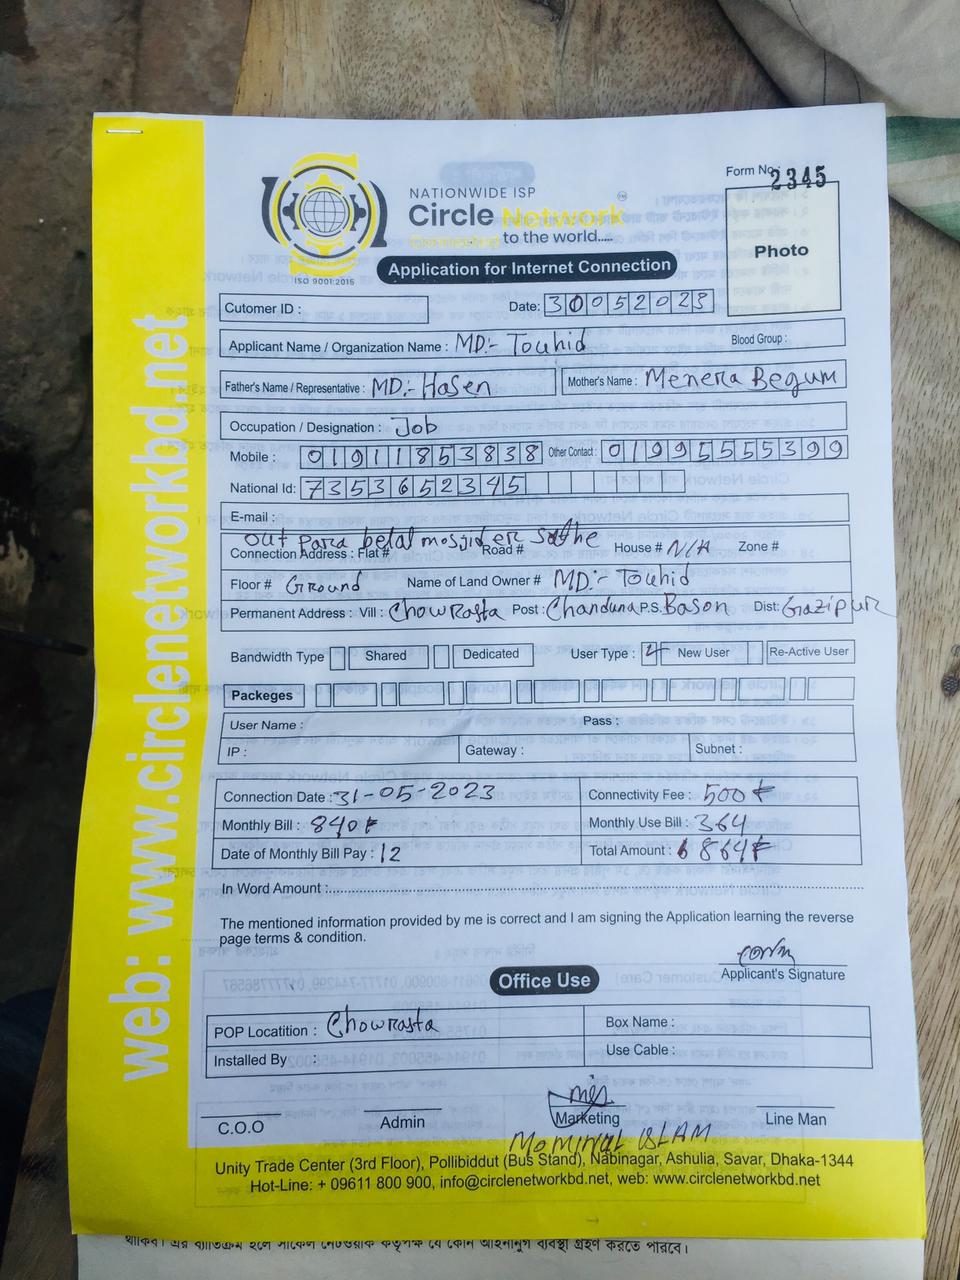 Form No: 2345
NATIONWIDE ISP
Circle Network™
to the world.....
ISO 9001:2015
Photo
Application for Internet Connection
Cutomer ID :
Date: 30052023
Applicant Name / Organization Name : MD:- Touhid Blood Group :
Father's Name / Representative : MD:- Hasen Mother's Name : Menera Begum
Occupation / Designation : Job
Mobile : 01911853838 Other Contact : 01995555399
National Id: 7353652345
E-mail :
out para belal mosjider sathe
Connection Address : Flat # Road # House # N/A Zone #
Floor # Ground Name of Land Owner # MD:- Touhid
Permanent Address : Vill : Chowrasta Post : Chanduna P.S. Bason Dist: Gazipur
Bandwidth Type Shared Dedicated User Type : New User Re-Active User
Packeges
User Name : Pass :
IP : Gateway : Subnet :
Connection Date : 31-05-2023 Connectivity Fee : 500৳
Monthly Bill : 840৳ Monthly Use Bill : 364
Date of Monthly Bill Pay : 12 Total Amount : 864৳
In Word Amount :
The mentioned information provided by me is correct and I am signing the Application learning the reverse
page terms & condition.
Applicant's Signature
Office Use
POP Locatition : Chowrasta Box Name :
Installed By : Use Cable :
C.O.O Admin Marketing Line Man
Mominul ISLAM
Unity Trade Center (3rd Floor), Pollibiddut (Bus Stand), Nabinagar, Ashulia, Savar, Dhaka-1344
Hot-Line: + 09611 800 900, info@circlenetworkbd.net, web: www.circlenetworkbd.net
web: www.circlenetworkbd.net
থাকিব। এর ব্যতিক্রম হলে সার্কেল নেটওয়ার্ক কর্তৃপক্ষ যে কোন আইনানুগ ব্যবস্থা গ্রহণ করতে পারবে।